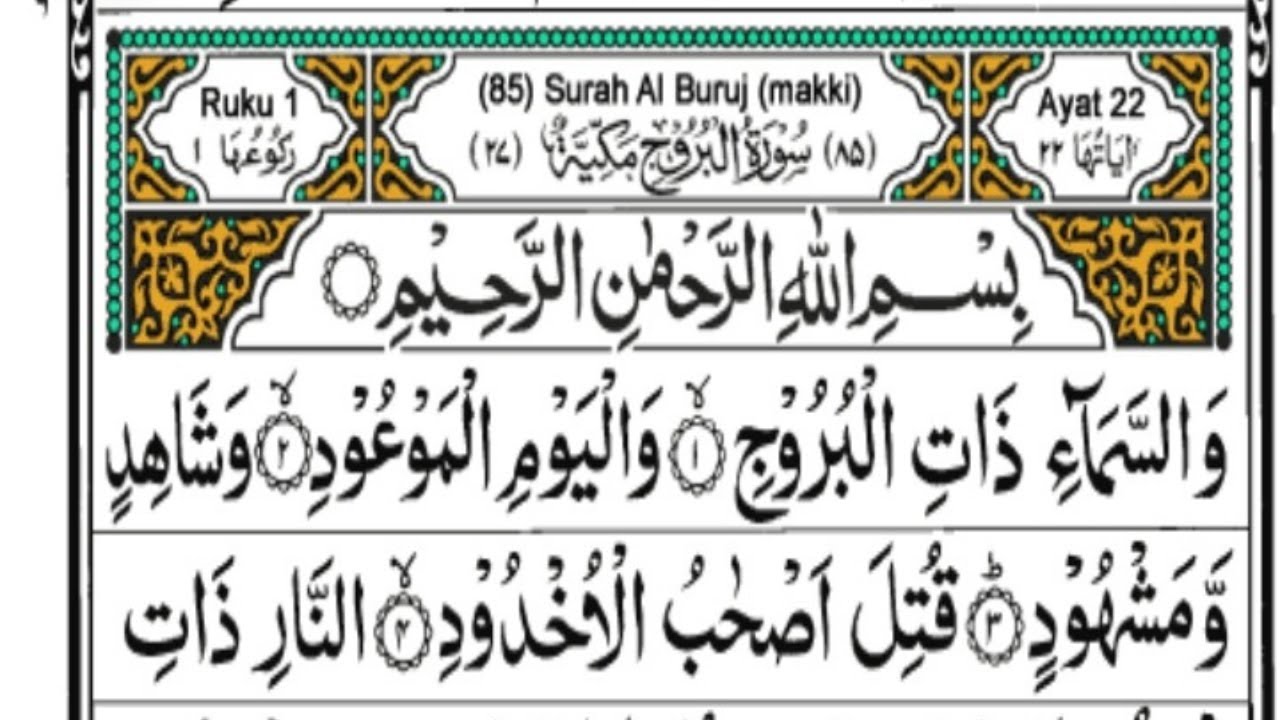 Ruku 1
(85) Surah Al Buruj (makki)
Ayat 22
رُكُوْعُهَا ١
(٨٥) سُوْرَةُ الْبُرُوْجِ مَكِّيَّةٌ (٢٧)
اٰيَاتُهَا ٢٢
بِسْمِ اللّٰهِ الرَّحْمٰنِ الرَّحِيْمِ
وَالسَّمَآءِ ذَاتِ الْبُرُوْجِ ۙ١ وَالْيَوْمِ الْمَوْعُوْدِ ۙ٢ وَشَاهِدٍ
وَّمَشْهُوْدٍ ؕ٣ قُتِلَ اَصْحٰبُ الْاُخْدُوْدِ ۙ۴ النَّارِ ذَاتِ